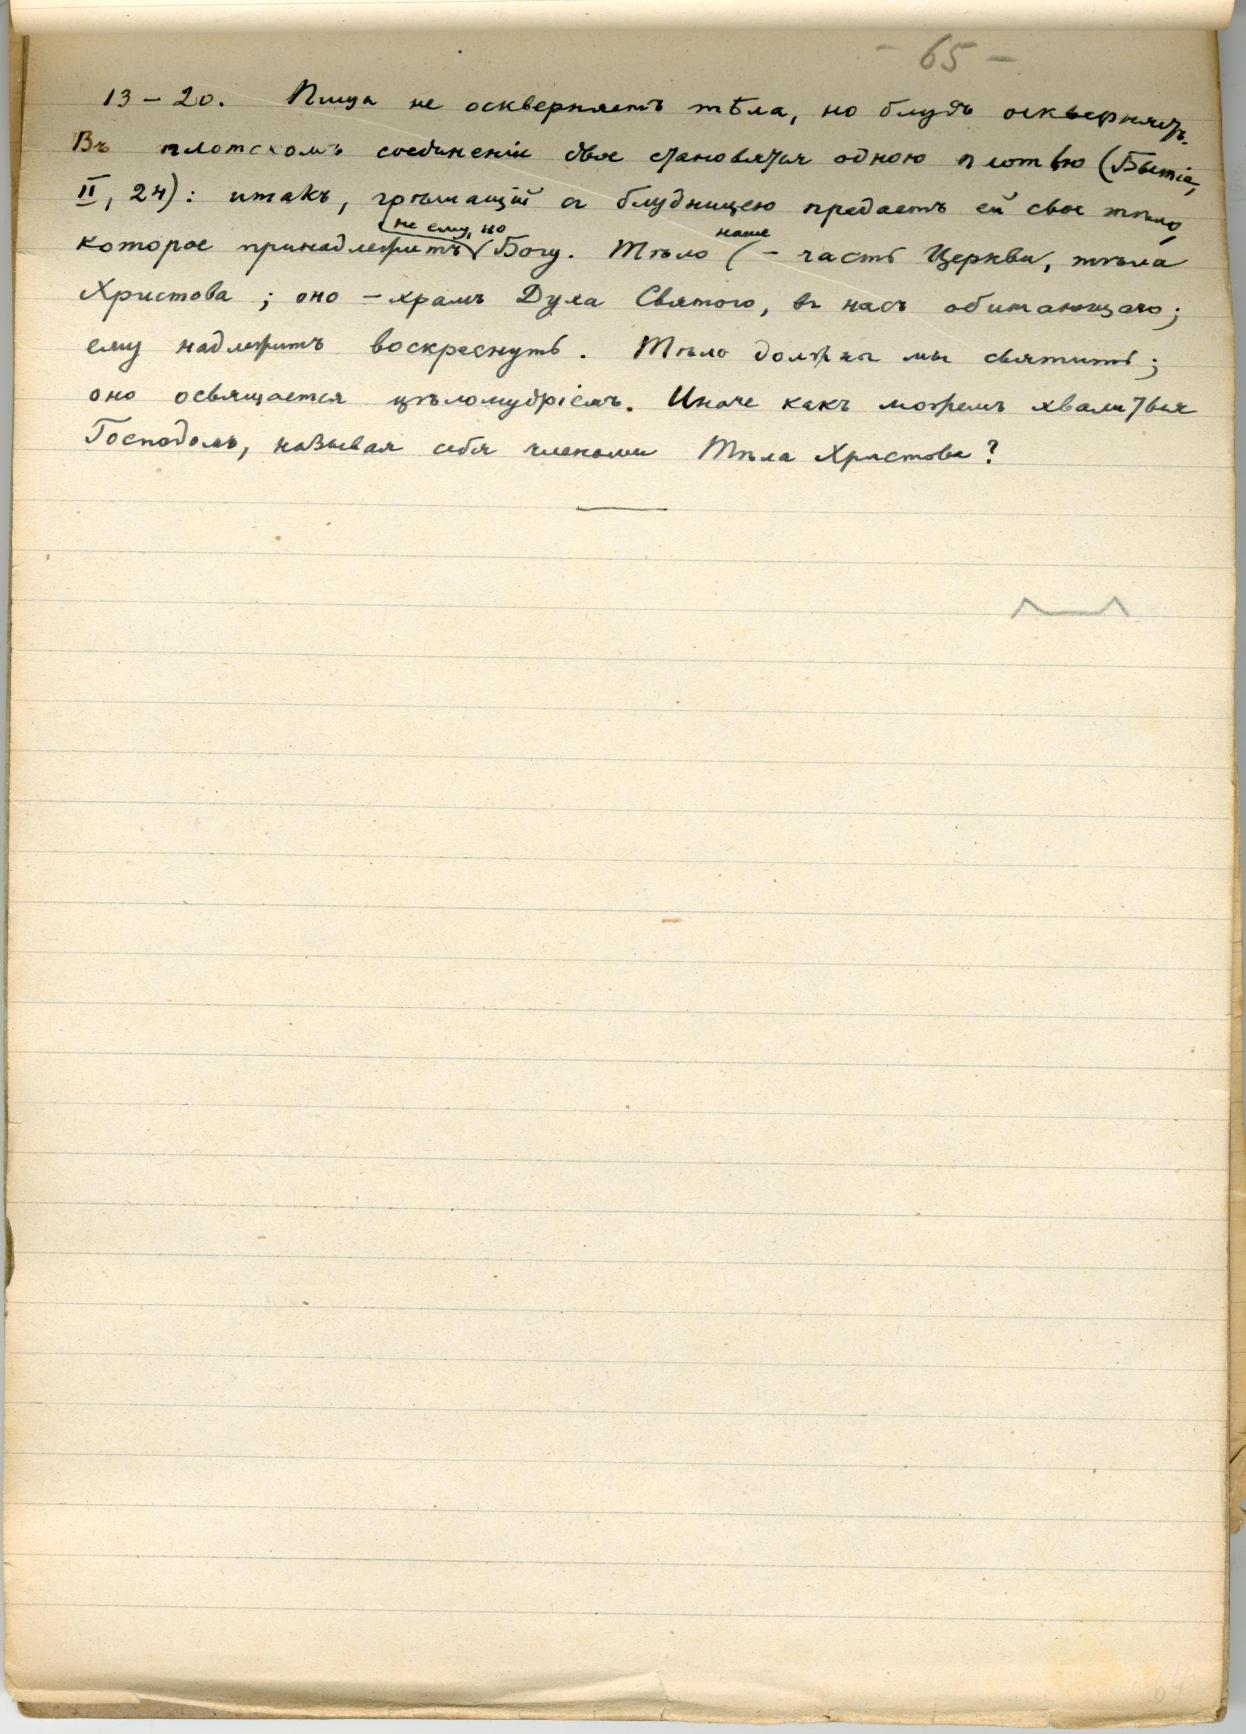 - 65 -
13 – 20. Пища не оскверняетъ тѣла, но блудъ оскверняетъ.
Въ плотскомъ соединеніи двое становятся одною плотью (Бытіе,
II, 24): итакъ, грѣшащій съ блудницею предаетъ ей свое тѣло,
не ему, но наше
которое принадлежитъ Богу. Тѣло – часть Церкви, тѣла
Христова; оно – храмъ Духа Святого, въ насъ обитающаго;
ему надлежитъ воскреснуть. Тѣло должны мы святить;
оно освящается цѣломудріемъ. Иначе какъ можемъ хвалиться
Господомъ, называя себя членами Тѣла Христова?
64